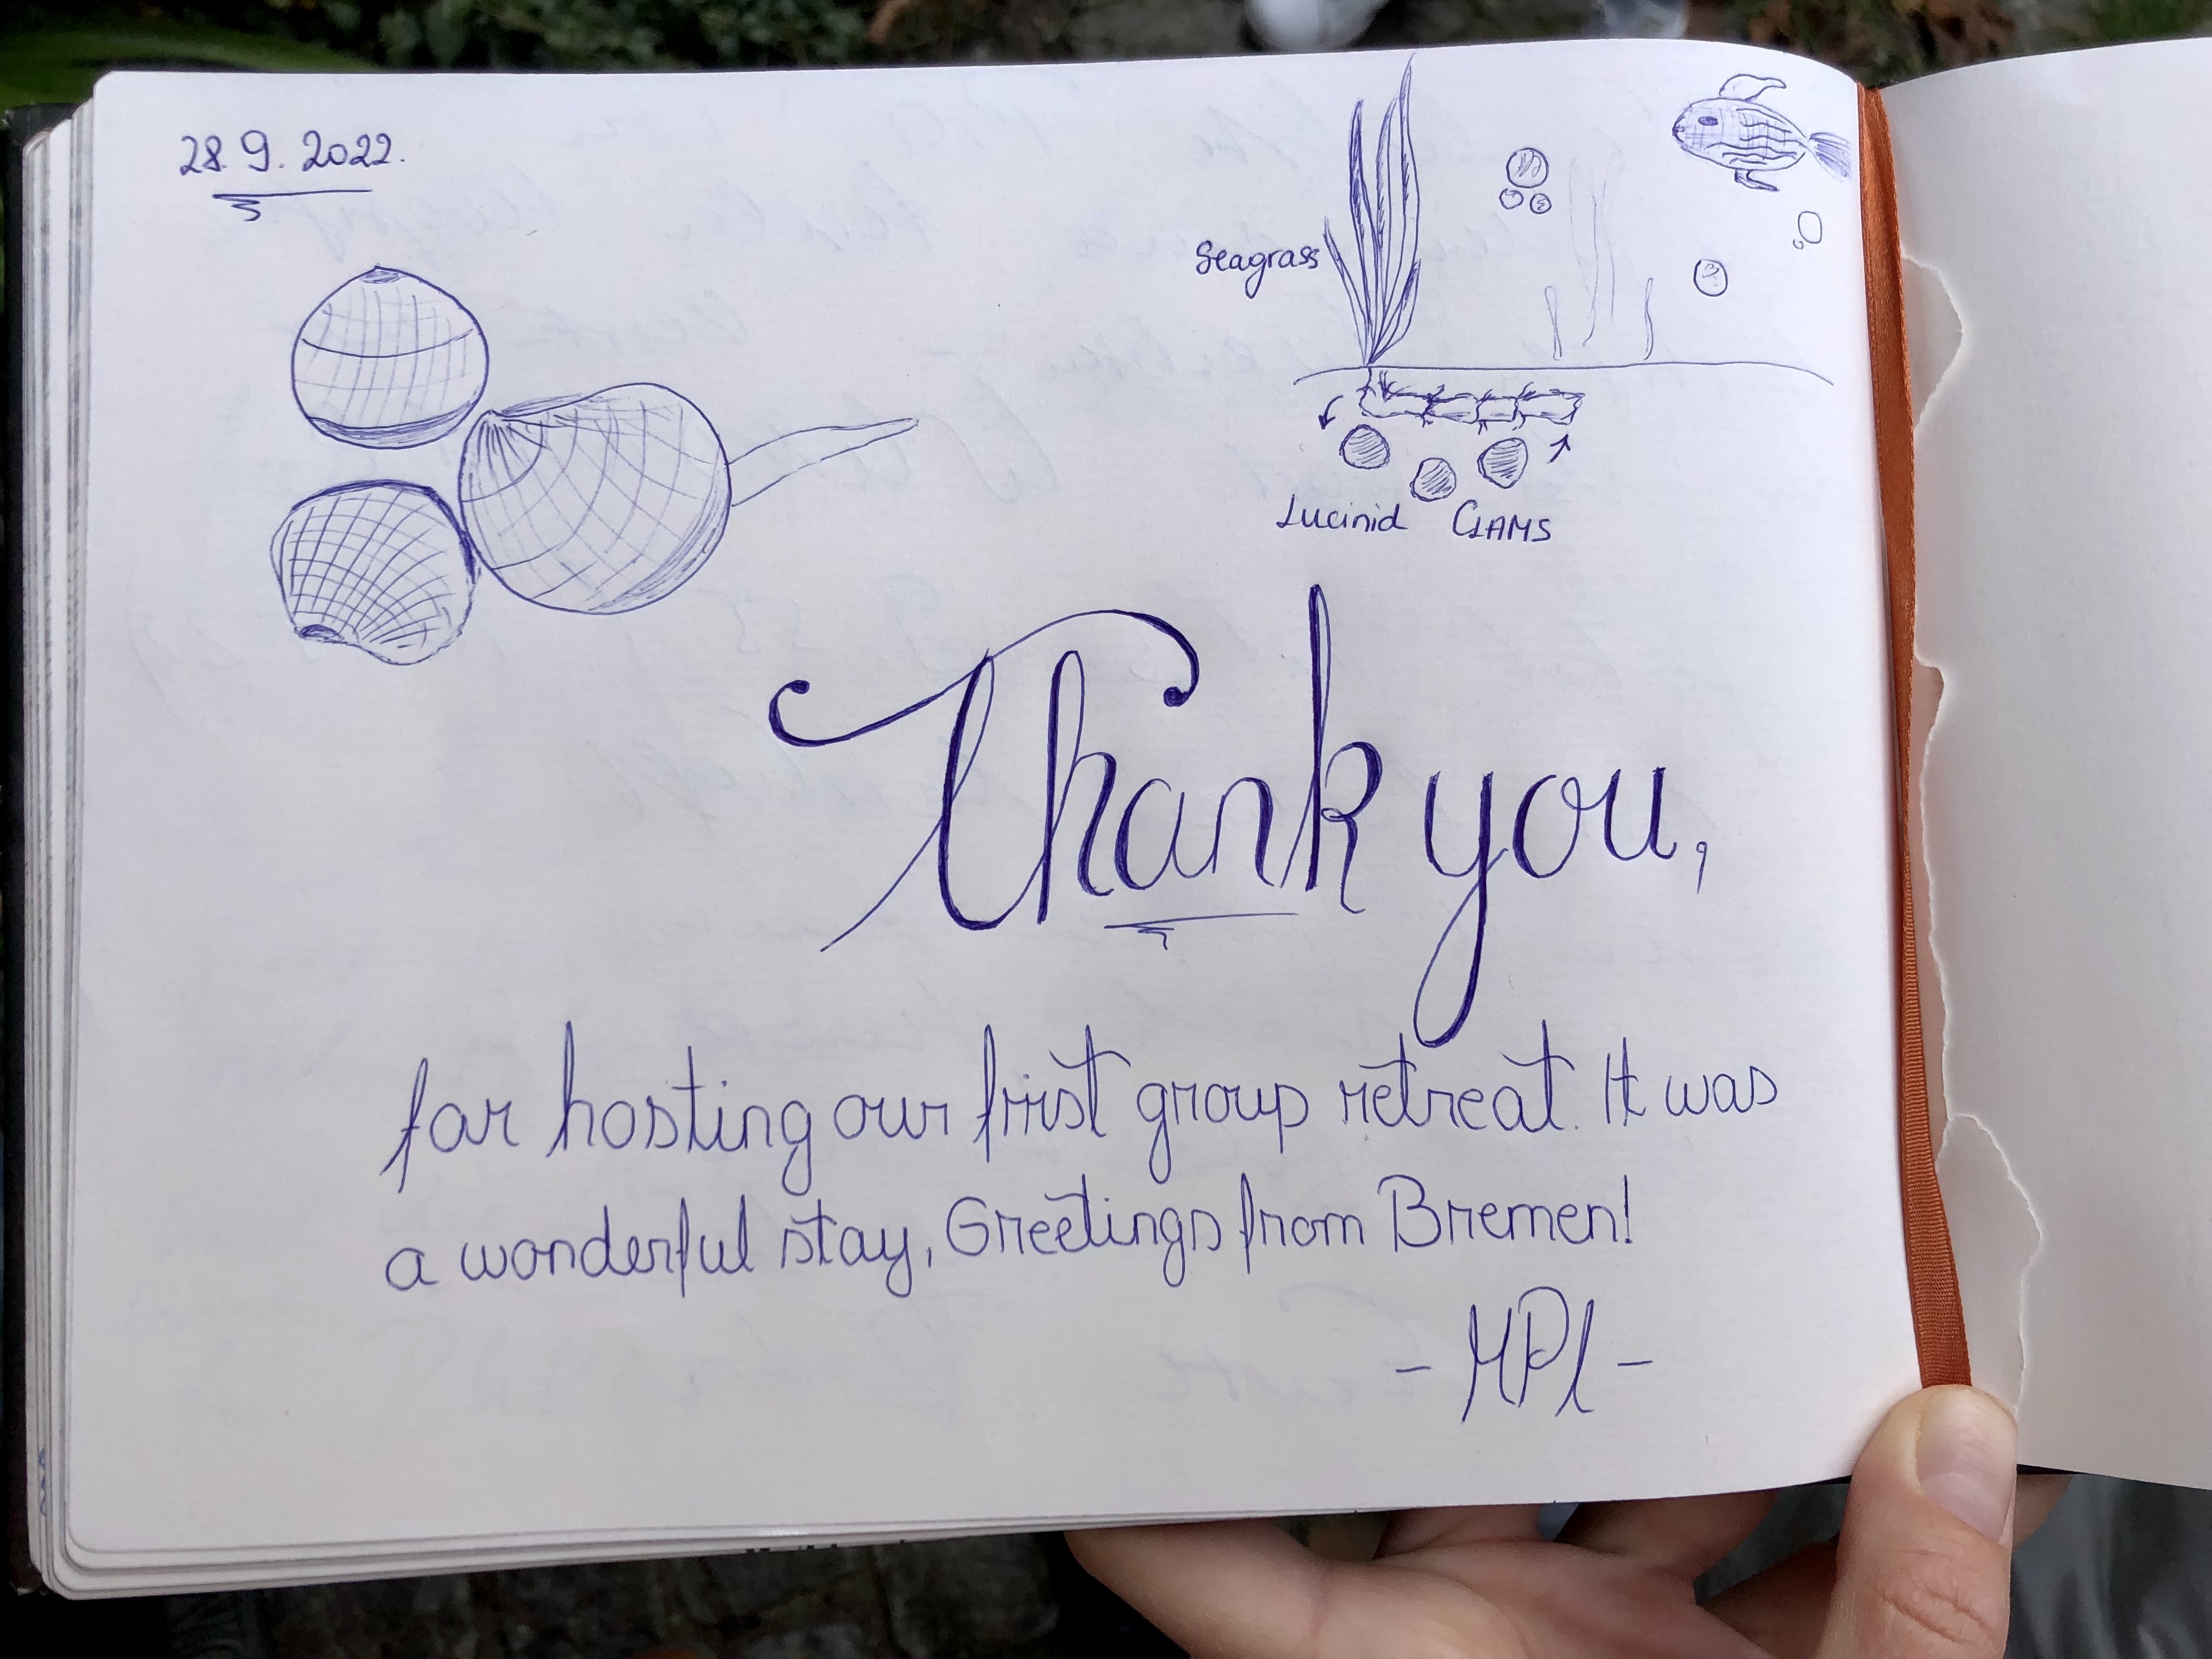 28.9.2022.
Seagrass
Lucinid CLAMS
Thank you,
for hosting our first group retreat. It was
a wonderful stay, Greetings from Bremen!
- MPI -